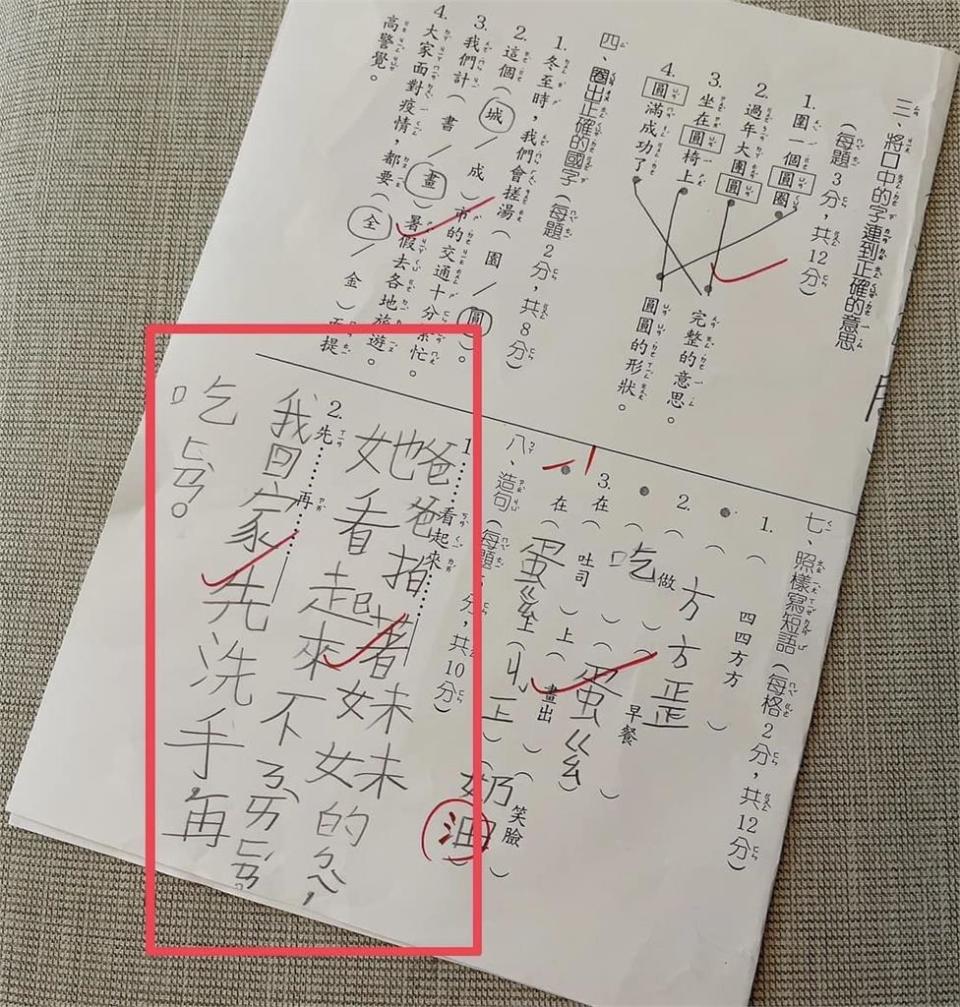 三、將口中的字連到正確的意思
(每題3分,共12分)
1. 圍一個圓圈
2. 過年大團圓
3. 坐在圓椅上
4. 圓滿成功了
完整的意思。
圓圓的形狀。
四、圈出正確的國字(每題2分,共8分)
1. 冬至時,我們會搓湯(園/圓)。
2. 這個(城/成)市的交通十分繁忙。
3. 我們計(書/畫)暑假去各地旅遊。
4. 大家面對疫情,都要(全/金)提
高警覺。
七、照樣寫短語(每格2分,共12分)
1. 四四方方
( 方方歪 )
2. 做早餐
( 吃 )( 蛋ㄍㄠ )
3. 在吐司上畫出笑臉
在( 蛋ㄍㄠ )( 上 )( 奶油 )
八、造句(每題分,共10分)
1. ……看起來……
爸爸拍著妹妹的,
她看起來不ㄋㄞˋㄈㄢ
2. 先……再……
我回家先洗手再
吃ㄈㄢ。